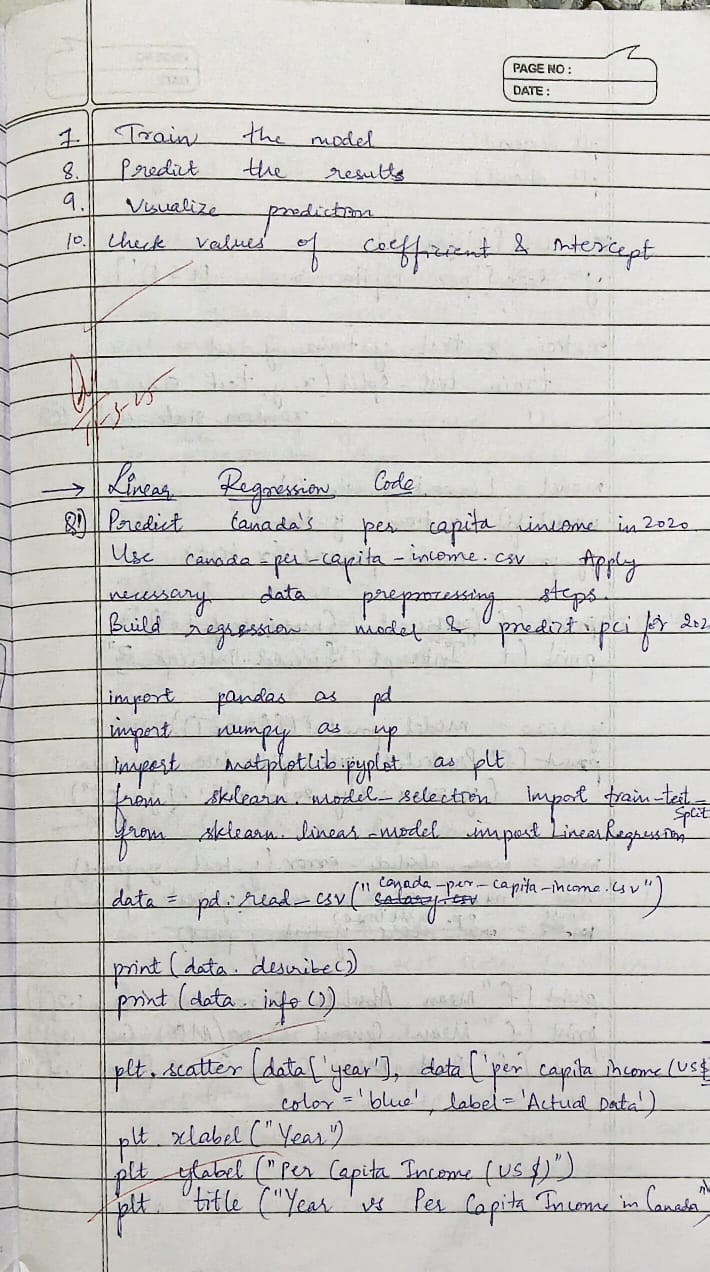 PAGE NO :
DATE :
7. Train the model
8. Predict the results
9. Visualize prediction
10. Check values of coefficient & intercept
11-3-25
→ Linear Regression Code
Q1) Predict Canada's per capita income in 2020
Use canada-per-capita-income.csv Apply
necessary data preprocessing steps.
Build regression model & predict pci for 202
import pandas as pd
import numpy as np
import matplotlib.pyplot as plt
from sklearn.model_selection import train_test_
split
from sklearn.linear_model import LinearRegression
canada-per-capita-income.csv")
data = pd.read_csv("salary.csv
print (data.describe())
print (data.info())
plt.scatter (data['year'], data['per capita income (US$
color = 'blue', label = 'Actual Data')
plt.xlabel ("Year")
plt ylabel ("Per Capita Income (US $)")
plt. title ("Year vs Per Capita Income in Canada")